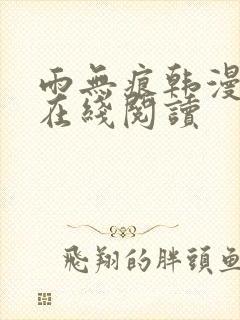 雨無痕韩漫
在綫閱讀
飛翔的胖頭鱼